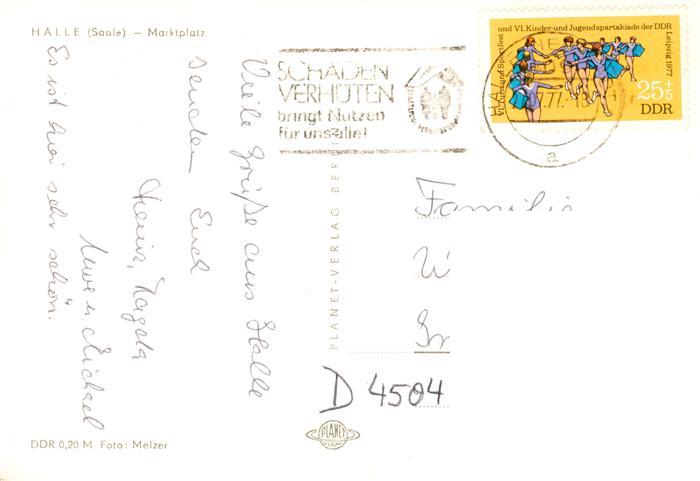 HALLE (Saale) – Marktplatz
Viele Grüße aus Halle
senden Euch
Heinz, Magda
Uwe u. Michael
Es ist hier sehr schön.
DDR 0,20 M Foto: Melzer
PLANET-VERLAG BER
PLANET
VERLAG
SCHÄDEN
VERHÜTEN
bringt Nutzen
für uns alle!
VI. Turn- und Sportfest
und VI. Kinder- und Jugendspartakiade der DDR
Leipzig 1977
25+5
DDR
HA
77
a
Familie
W
D 4504